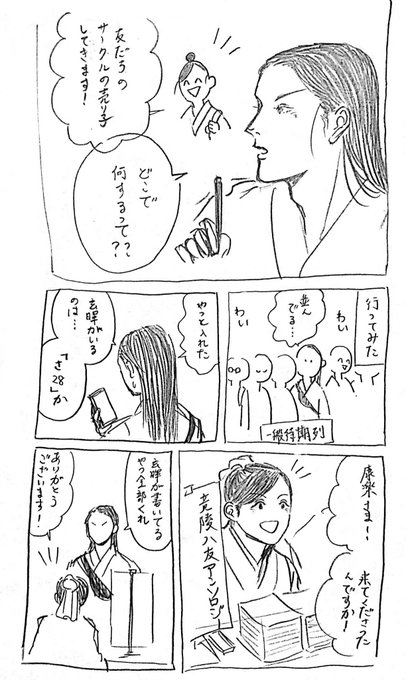 友だちの
サークルの売り子
してきます!
どこで
何するって??
行ってみた
わい
並ん
でる…
わい
一般待機列
やっと入れた
玄暉がいる
のは…
「さ28」か
康楽さま〜
来てくださった
んですか!
竟陵八友アンソロジ
玄暉が書いてる
やつ全部くれ
ありがとう
ございます!